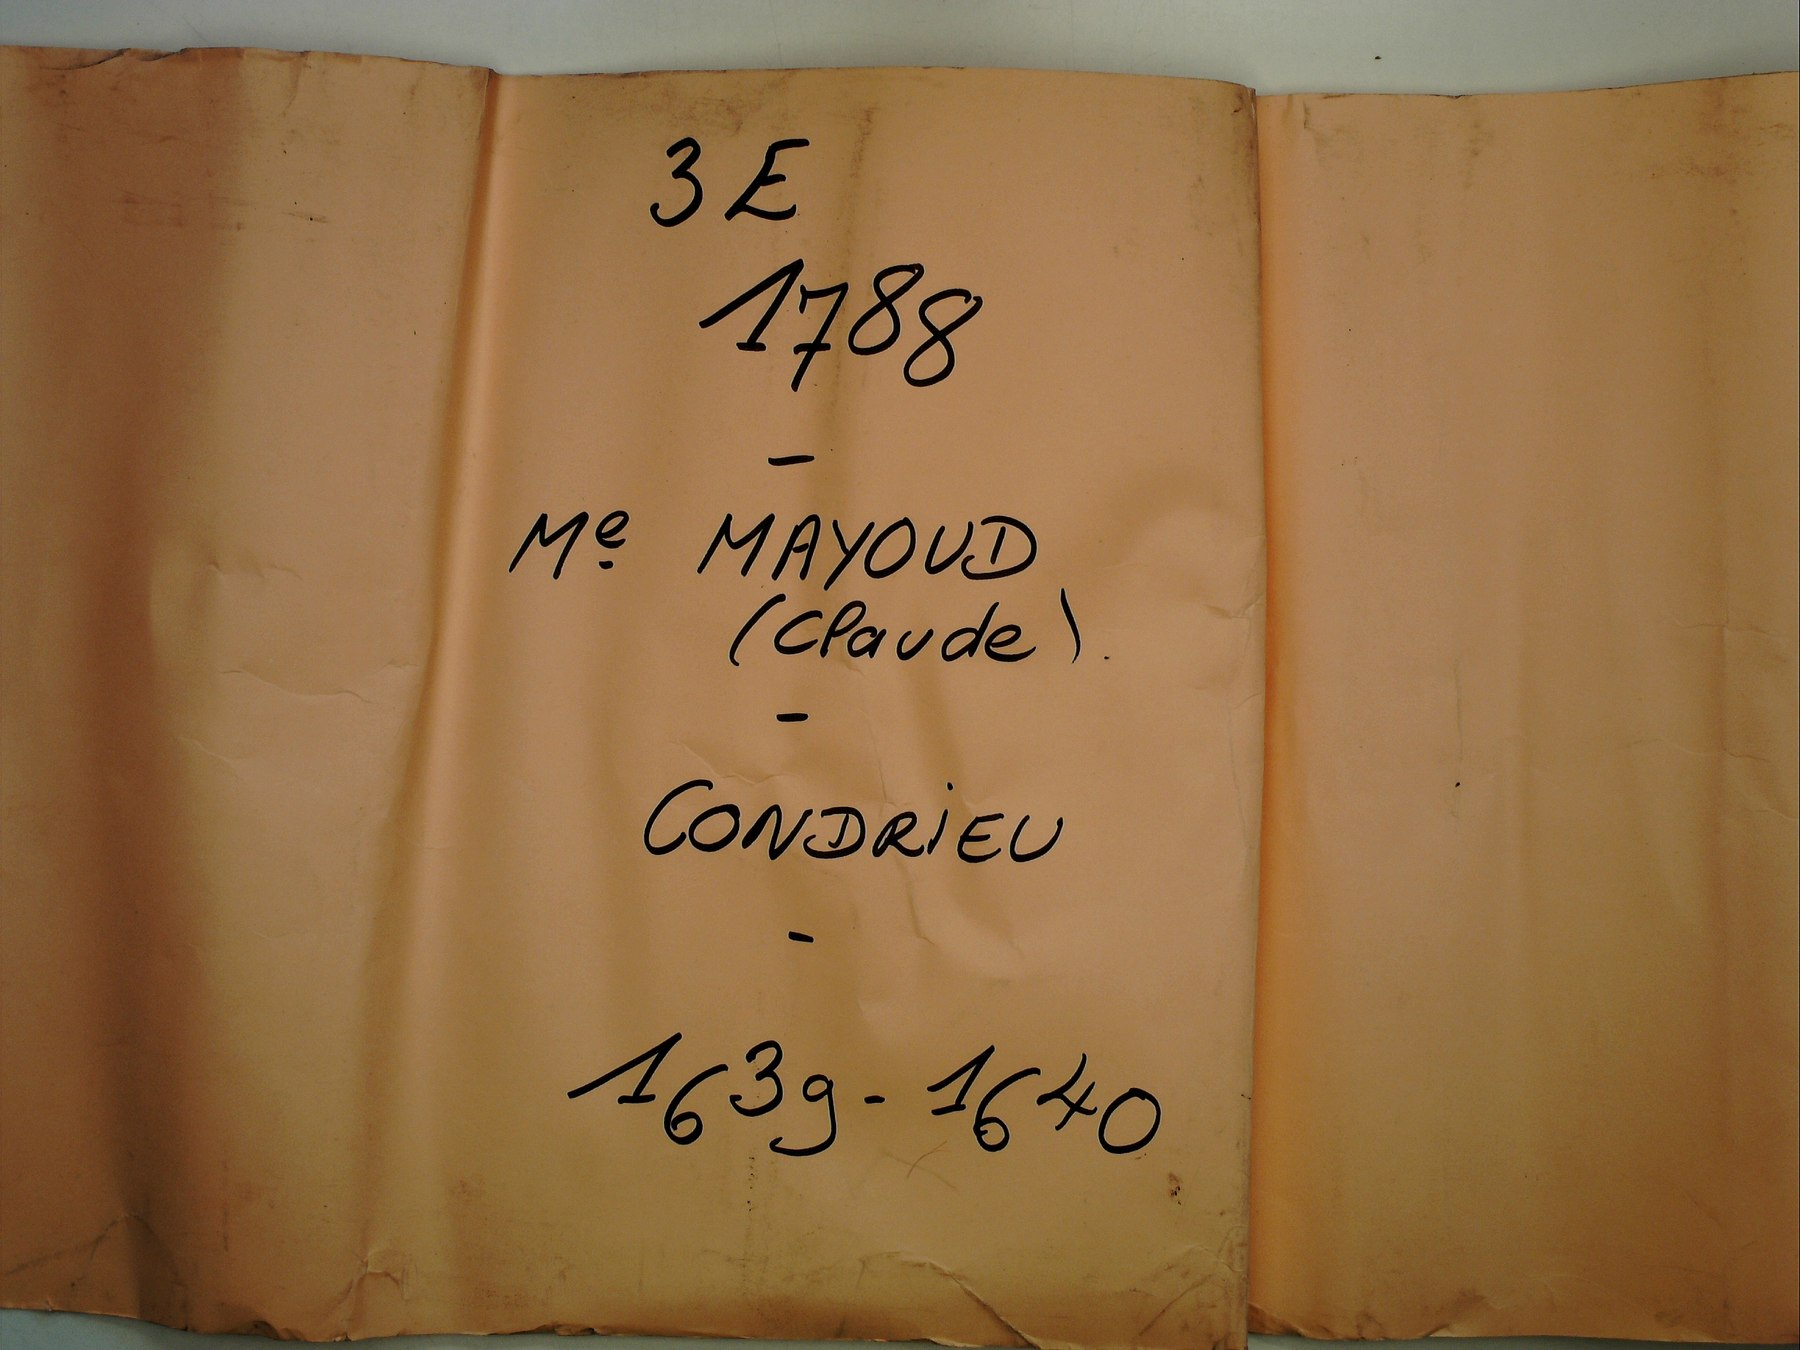 3E
1788
-
Me MAYOUD
(Claude).
-
CONDRIEU
-
1639-1640